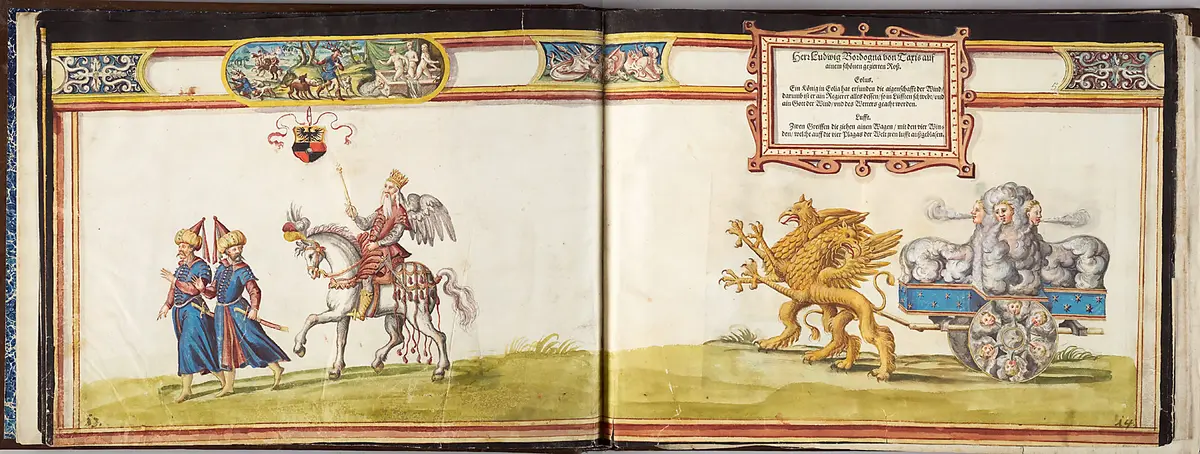 Herr Ludwig Bordogna von Taxis auf
ainem schönen gezierten Roß.
Eolus.
Ein König in Eolia hat erfunden die aigenschafft der Wind/
darumb ist er ain Regierer alles dessen/ so in Lüfften schwebt/ und
ain Gott der Wind/ und des Wetters geacht worden.
Lufft.
Zwen Greiffen die ziehen ainen Wagen/ mit den vier Win-
den/ welche auff die vier Plagas der Welt jren lufft außgeblasen.
14